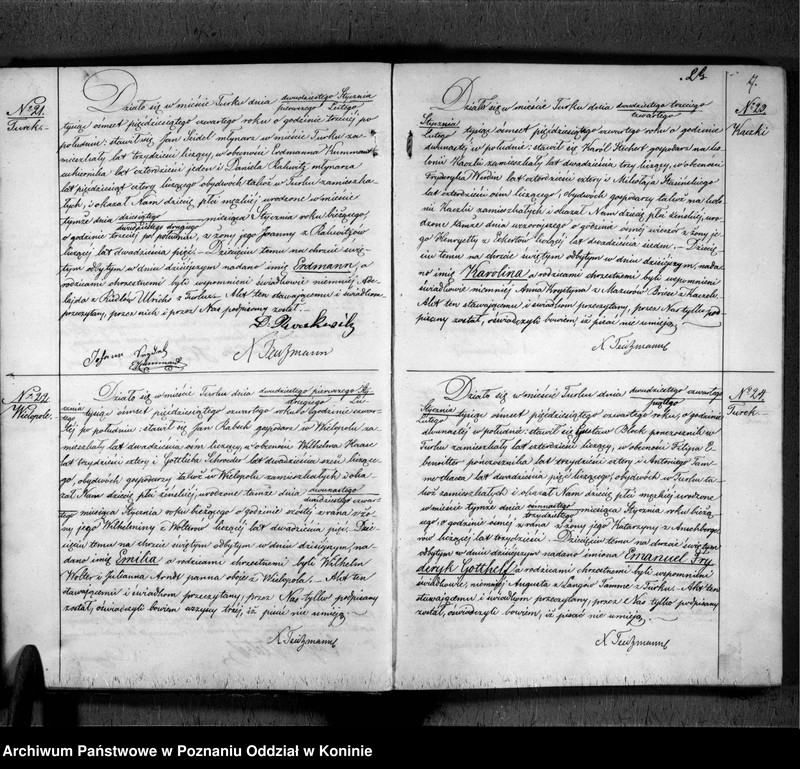 No 21.
Turek.
Działo się w mieście Turku dnia dwudziestego Stycznia
pierwszego Lutego
tysiąc ośmset pięćdziesiątego czwartego roku o godzinie trzeciej po
południu: stawił się Jan Seidel młynarz w mieście Turku za
mieszkały lat trzydzieści liczący, w obecności Erdmanna
cukiernika lat czterdzieści jeden i Daniela młynarza
lat pięćdziesiąt cztery liczącego obydwóch także w Turku zamieszka
łych, i okazał Nam dziecię płci męzkiej urodzone w mieście
tymże dnia dziesiątego
dwudziestego drugiego miesiąca Stycznia roku bieżącego,
o godzinie trzeciej po południu, z żony jego Joanny z
liczącej lat dwadzieścia pięć. Dziecięciu temu na chrzcie świę
tym odbytym w dniu dzisiejszym nadano imię Erdmann, a
rodzicami chrzestnemi byli wspomnieni świadkowie niemniej Ade
lajda z Ulrich z Turku. Akt ten stawającemu i świadkom
przeczytany, przez nich i przez Nas podpisany został.
Johann
N Teutzmann
No 22.
Wielopole.
Działo się w mieście Turku dnia dwudziestego pierwszego Sty
cznia drugiego Lu
tego tysiąc ośmset pięćdziesiątego czwartego roku o godzinie czwar
tej po południu: stawił się Jan gospodarz w Wielopolu za
mieszkały lat dwadzieścia ośm liczący, w obecności Wilhelma Haase
lat trzydzieści cztery i Gottlieba Schroeder lat dwadzieścia sześć liczące
go, obydwóch gospodarzy także w Wielopolu zamieszkałych i oka
zał Nam dziecię płci żeńskiej, urodzone tamże dnia dwunastego
dwudziestego czwar
tego miesiąca Stycznia roku bieżącego o godzinie szóstej z rana z żo
ny jego Wilhelminy z Wolterów liczącej lat dwadzieścia pięć. Dzie
cięciu temu na chrzcie świętym odbytym w dniu dzisiejszym, na
dano imię Emilia a rodzicami chrzestnemi byli Wilhelm
Wolter i Julianna Arndt panna oboje z Wielopola. Akt ten
stawającemu i świadkom przeczytany, przez Nas tylko podpisany
został, oświadczyli bowiem wszyscy trzej, iż pisać nie umieją.
N Teutzmann
7.
No 23.
Kaczki
Działo się w mieście Turku dnia dwudziestego trzeciego
czwartego
Stycznia
Lutego tysiąc ośmset pięćdziesiątego czwartego roku o godzinie
dwunastej w południe: stawił się Karól gospodarz na ko
lonii Kaczki zamieszkały lat dwadzieścia trzy liczący, w obecności
Frydrycha lat czterdzieści cztery i Mikołaja
lat czterdzieści ośm liczącego, obydwóch gospodarzy także na kolo
nii Kaczki zamieszkałych i okazał Nam dziecię płci żeńskiej, uro
dzone tamże dnia wczorajszego o godzinie ósmej wieczór z żony je
go Henryetty z liczącej lat dwadzieścia siedm. Dziecię
ciu temu na chrzcie świętym odbytym w dniu dzisiejszym, nada
no imię Karolina a rodzicami chrzestnemi byli wspomnieni
świadkowie niemniej Anna Krystyna z Mazurów z Kaczek.
Akt ten stawającemu i świadkom przeczytany, przez Nas tylko pod
pisany został, oświadczyli bowiem, iż pisać nie umieją.
N Teutzmann
No 24.
Turek.
Działo się w mieście Turku dnia dwudziestego czwartego
piątego
Stycznia
Lutego tysiąc ośmset pięćdziesiątego czwartego roku, o godzinie
dwunastej w południe: stawił się Gustaw Block ponczosznik w
Turku zamieszkały lat czterdzieści liczący, w obecności Filipa E
benritter ponczosznika lat trzydzieści cztery i Antoniego Tam
me tkacza lat dwadzieścia pięć liczącego, obydwóch w Turku ta
koż zamieszkałych i okazał Nam dziecię płci męzkiej urodzone
w mieście tymże dnia ośmnastego
trzydziestego miesiąca Stycznia, roku bieżą
cego, o godzinie ósmej z rana z żony jego Katarzyny z
rów liczącej lat trzydzieści. Dziecięciu temu na chrzcie świętym
odbytym w dniu dzisiejszym nadano imiona Emanuel Fry
deryk Gotthelf a rodzicami chrzestnemi byli wspomnieni
świadkowie, niemniej Augusta z Langów Tamme z Turku. Akt ten
stawającemu i świadkom przeczytany, przez Nas tylko podpisany
został, oświadczyli bowiem, iż pisać nie umieją.
N Teutzmann
Archiwum Państwowe w Poznaniu Oddział w Koninie